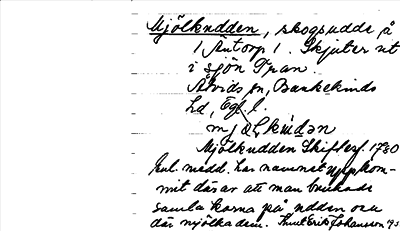 Mjölkudden, skogsudde å
1 Äntorp 1. Skjuter ut
i sjön Tran.
Åtvids sn, Bankekinds
hd, Ögl. l.
Mjölkudden Skifteskt. 1780
Enl. medd. har namnet uppkom-
mit därav att man brukade
samla korna på udden och
där mjölka dem. Knut Erik Johansson